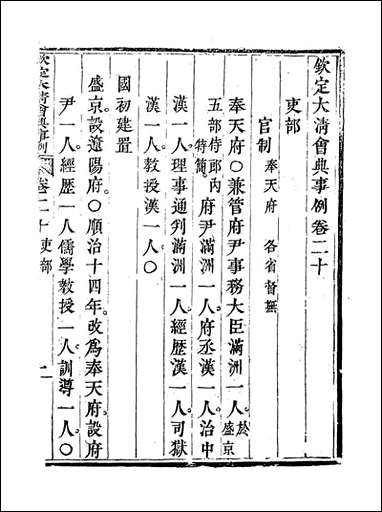 欽定大清會典事例卷二十
吏部
官制 奉天府 各省督撫
奉天府○兼管府尹事務大臣滿洲一人。於盛京
五部侍郎內特簡。府尹滿洲一人。府丞漢一人。治中
漢一人。理事通判滿洲一人。經歷漢一人。司獄
漢一人。教授漢一人○
國初建置
盛京設遼陽府○順治十四年。改為奉天府。設府
尹一人。經歷一人。儒學教授一人。訓導一人○
欽定大清會典事例 卷二十 吏部 二